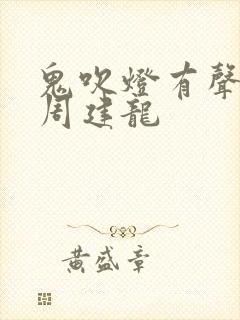 鬼吹燈有聲
周建龍
黃盛章